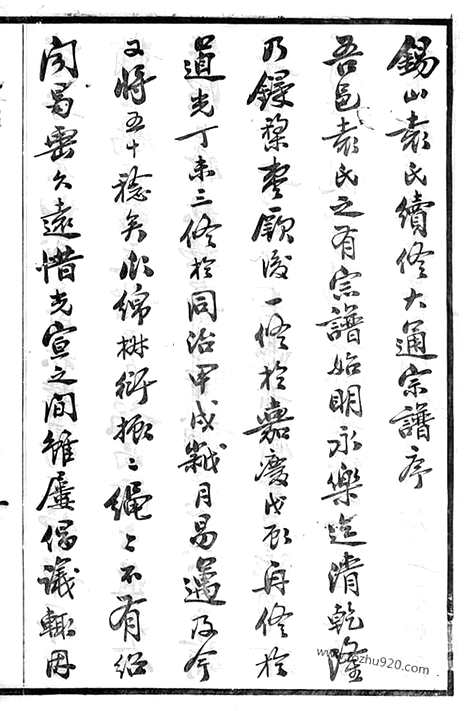 錫山袁氏續修大通宗譜序
吾邑袁氏之有宗譜始明永樂迄清乾隆
乃鋟棃棗厥後一修於嘉慶戊辰再修於
道光丁未三修於同治甲戌歲月易邁及今
又將五十稔矣瓜綿椒衍振〻繩〻不有紹
聞曷垂久遠惜光宣之間雖屢倡議輒因
zhu920.com